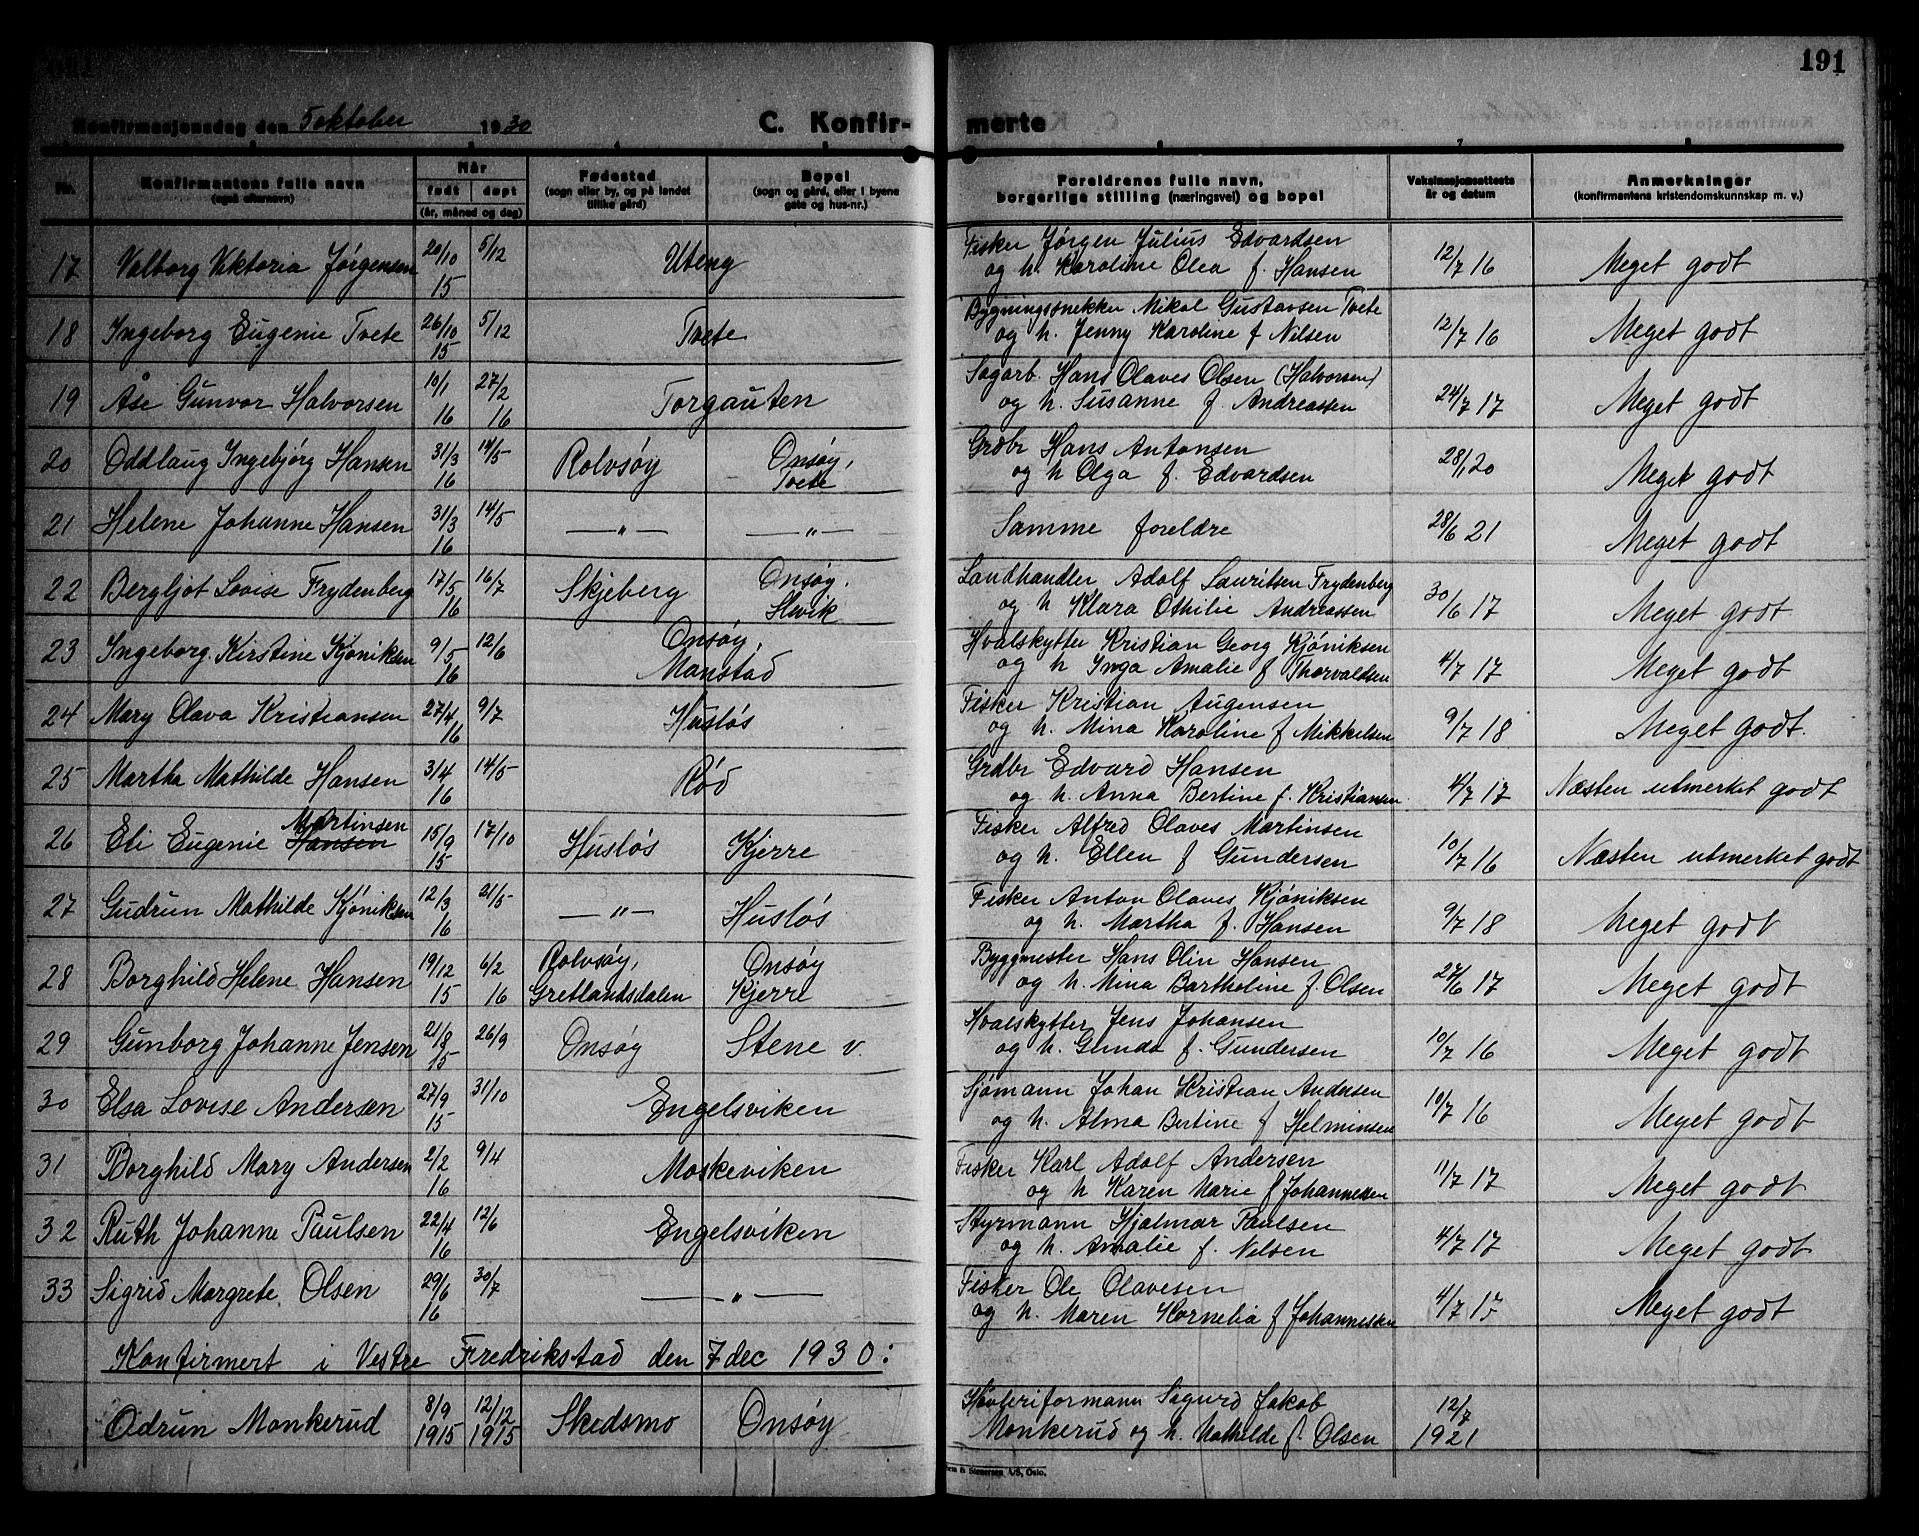 191
Konfirmasjonsdag den 5 oktober 1930 C. Konfirmerte
Nr. Konfirmantens fulle navn (også efternavn) Når født døpt (år, måned og dag) Fødestad (sogn eller by, og på landet tillike gård) Bopel (sogn og gård, eller i byene gate og hus-nr.) Foreldrenes fulle navn, borgerlige stilling (næringsvei) og bopel Vaksinasjonsattests år og datum Anmerkninger (konfirmantens kristendomskunnskap m. v.)
17 Valborg Viktoria Jørgensen 20/10 15 5/12 Uteng Fisker Jørgen Julius Edvardsen
og h. Karoline Olea f. Hansen 12/7 16 Meget godt
18 Ingeborg Eugenie Tvete 26/10 15 5/12 Tvete Bygningssnekker Mikal Gustavsen Tvete
og h. Jenny Karoline f Nilsen 12/7 16 Meget godt
19 Åse Gunvor Halvorsen 10/1 16 27/2 16 Torgauten Sagarb. Hans Olaves Olsen (Halvorsen)
og h. Susanne f. Andreassen 24/7 17 Meget godt
20 Oddlaug Ingebjørg Hansen 31/3 16 14/5 Rolvsøy Onsøy, Tvete Grdbr Hans Antonsen
og h Olga f. Edvardsen 28/1 20 Meget godt
21 Helene Johanne Hansen 31/3 16 14/5 — " — — " — Samme foreldre 28/6 21 Meget godt
22 Bergljot Lovise Frydenberg 17/5 16 16/7 Skjeberg Onsøy. Slevik Landhandler Adolf Lauritsen Frydenberg
og h Klara Othilie Andreassen 30/6 17 Meget godt
23 Ingeborg Kirstine Kjøniksen 9/5 16 12/6 Onsøy, Manstad Hvalskytter Kristian Georg Kjøniksen
og h Inga Amalie f Thorvaldsen 4/7 17 Meget godt
24 Mary Olava Kristiansen 27/4 16 9/7 Husløs Fisker Kristian Augensen
og h. Mina Karoline f Mikkelsen 9/7 18 Meget godt.
25 Martha Mathilde Hansen 3/4 16 14/5 Rød Grdbr Edvard Hansen
og h. Anna Bertine f. Kristiansen 4/7 17 Næsten utmerket godt
26 Eli Eugenie Hansen Martinsen 15/9 15 17/10 Husløs Kjerre Fisker Alfred Olaves Martinsen
og h. Ellen f Gundersen 10/7 16 Næsten utmerket godt
27 Gudrun Mathilde Kjøniksen 12/3 16 21/5 — " — Husløs Fisker Anton Olaves Kjøniksen
og h. Martha f. Hansen 9/7 18 Meget godt
28 Borghild Helene Hansen 19/12 15 6/2 16 Rolvsøy, Gretlandsdalen Onsøy Kjerre Byggmester Hans Olin Hansen
og h. Mina Bartholine f. Olsen 27/6 17 Meget godt
29 Gunborg Johanne Jensen 21/8 15 26/9 Onsøy Stene v. Hvalskytter Jens Johansen
og h. Gunda f. Gundersen 10/7 16 Meget godt
30 Elsa Lovise Andersen 27/9 15 31/10 Engelsviken Sjømann Johan Kristian Andersen
og h. Alma Bertine f Helminsen 10/7 16 Meget godt
31 Borghild Mary Andersen 2/2 16 9/4 Moskeviken Fisker Karl Adolf Andersen
og h Karen Marie f Johannesen 11/7 17 Meget godt
32 Ruth Johanne Paulsen 22/4 16 12/6 Engelsviken Styrmann Hjalmar Paulsen
og h. Amalie f. Nilsen 4/7 17 Meget godt
33 Sigrid Margrete Olsen 29/6 16 30/7 — " — Fisker Ole Olavesen
og h. Maren Kornelia f Johannesen 4/7 Meget godt
Konfirmert i Vestre Fredrikstad den 7 dec 1930:
Odrun Monkerud 8/9 1915 12/12 1915 Skedsmo Onsøy Høvleriformann Sigurd Jakob
Monkerud og h. Mathilde f. Olsen 12/7 1921
& Stenersen A/S, Oslo.